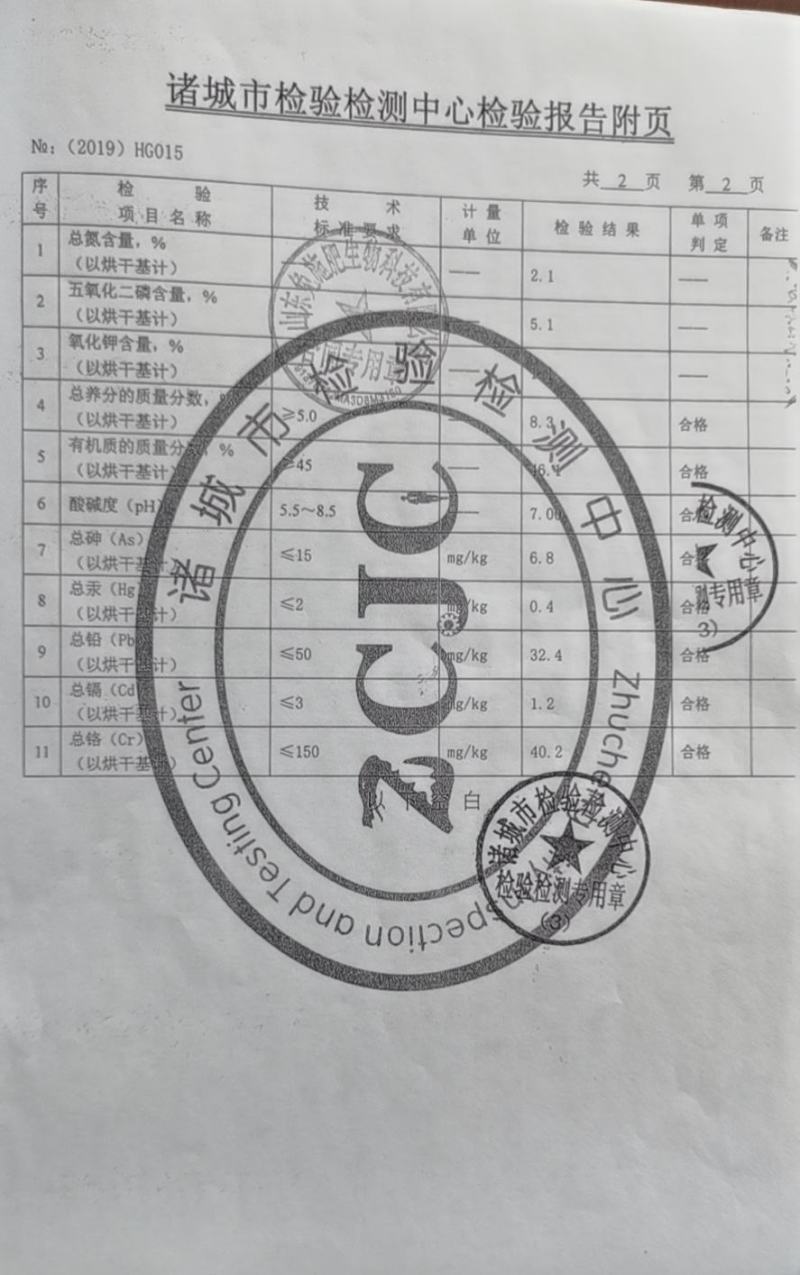 诸城市检验检测中心检验报告附页
№:（2019）HG015
共 2 页 第 2 页
序号 检验项目名称 技术标准要求 计量单位 检验结果 单项判定 备注
1 总氮含量，%（以烘干基计） —— 2.1 ——
2 五氧化二磷含量，%（以烘干基计） 5.1 ——
3 氧化钾含量，%（以烘干基计） ——
4 总养分的质量分数，（以烘干基计） ≥5.0 —— 8.3 合格
5 有机质的质量分数，%（以烘干基计） ≥45 —— 46.1 合格
6 酸碱度（pH） 5.5～8.5 —— 7.00 合
7 总砷（As）（以烘干基计） ≤15 mg/kg 6.8 合
8 总汞（Hg）（以烘干基计） ≤2 mg/kg 0.4 合格
9 总铅（Pb）（以烘干基计） ≤50 mg/kg 32.4 合格
10 总镉（Cd）（以烘干基计） ≤3 mg/kg 1.2 合格
11 总铬（Cr）（以烘干基计） ≤150 mg/kg 40.2 合格
以下空白
诸城市检验检测中心
ZCJC
Zhuche
spection and Testing Center
合同专用章
检测中心
测专用章
3)
诸城市检验检测中心
检验检测专用章
(3)